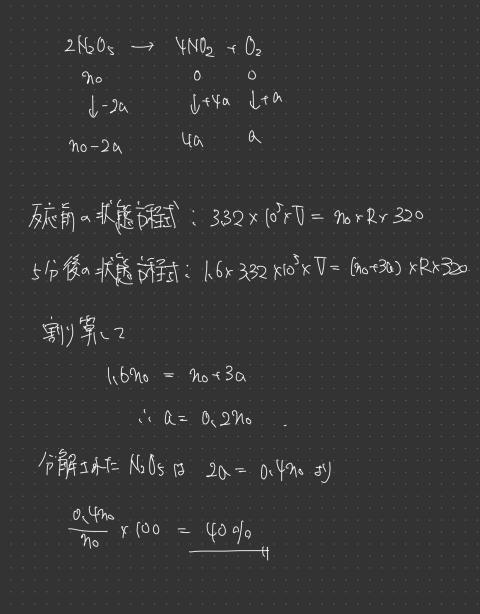 2N2O5 → 4NO2 + O2
n0 0 0
↓-2a ↓+4a ↓+a
n0-2a 4a a
反応前の状態方程式: 3.32×10⁵×V = n0×R×320
5分後の状態方程式: 1.6×3.32×10⁵×V = (n0+3a)×R×320
割り算して
1.6n0 = n0+3a
∴ a = 0.2n0.
分解された N2O5は 2a = 0.4n0 より
0.4n0/n0 × 100 = 40%